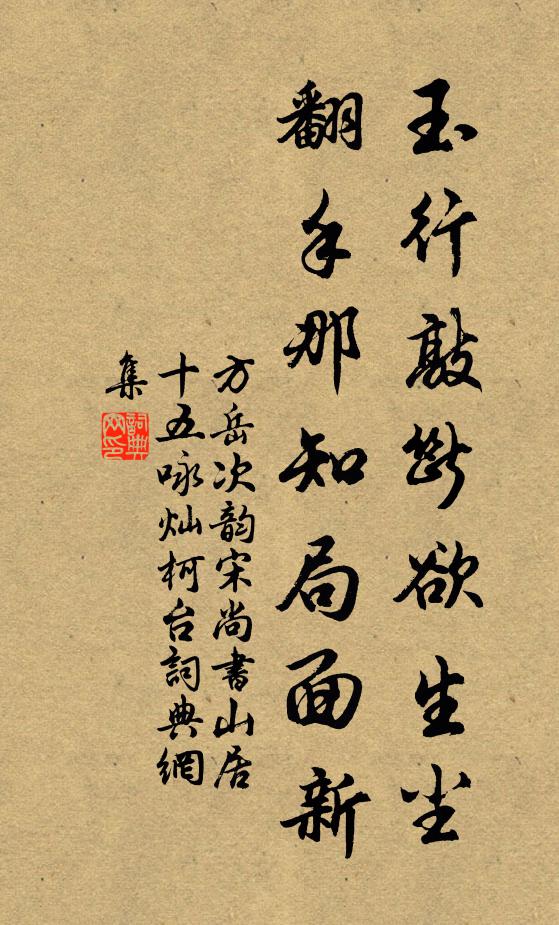 玉行敲断欲生尘
翻手那知局面新
方岳次韵宋尚書山居
十五咏灿柯台詞典網
集
詞典網印